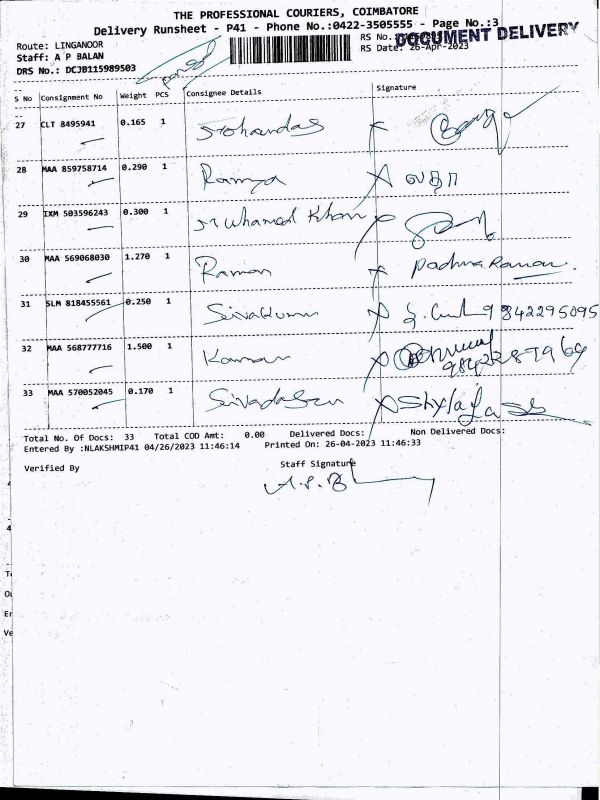 THE PROFESSIONAL COURIERS, COIMBATORE
Delivery Runsheet - P41 - Phone No.:0422-3505555 - Page No.:3
DOCUMENT DELIVERY
Route: LINGANOOR
RS No.:
Staff: A P BALAN
RS Date: 26-Apr-2023
DRS No.: DCJB115989503
S No Consignment No Weight PCS Consignee Details Signature
27 CLT 8495941 0.165 1 Mohandas
28 MAA 859758714 0.290 1 Ramya லதா
29 IXM 503596243 0.300 1 Muhamed Khan
30 MAA 569068030 1.270 1 Raman Padma Raman.
31 SLM 818455561 0.250 1 Sivakumar 9842295095
32 MAA 568777716 1.500 1 Kannan
33 MAA 570052045 0.170 1 Sivadasan Shylaja
Total No. Of Docs: 33 Total COD Amt: 0.00 Delivered Docs: Non Delivered Docs:
Entered By :NLAKSHMIP41 04/26/2023 11:46:14 Printed On: 26-04-2023 11:46:33
Verified By Staff Signature